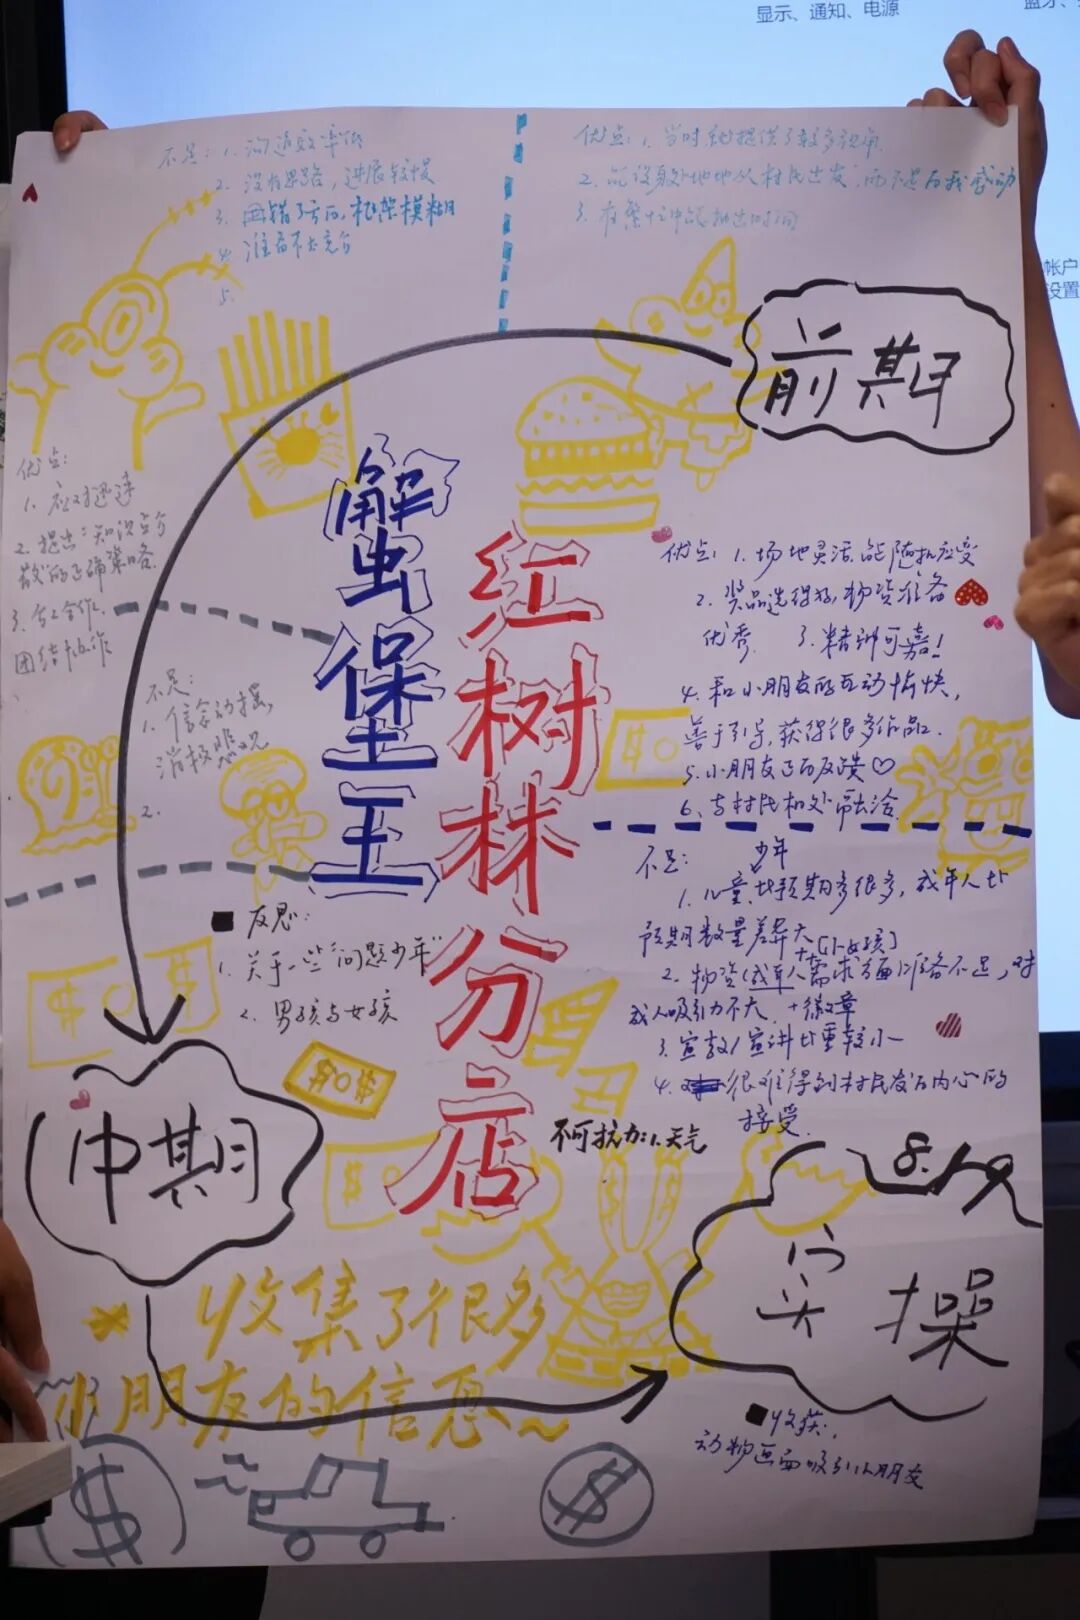 显示、通知、电源
帐户
设置
不足：1. 沟通效率低
2. 没有思路，进展较慢
3. 框架模糊
4. 准备不太充分
5.
优点：1. 当时就提供了较多视角
2. 能设身处地地从村民出发，而不是自我感动
3. 在繁忙中能抽出时间
前期
优点：
1. 应对迅速
2. 提出“知识点分
散”的正确策略.
3. 分工合作，
团结协作
不足：
1. 信念动摇，
消极悲观
2.
蟹堡王
红树林分店
优点：1. 场地灵活，能随机应变
2. 奖品选得好，物资准备
优秀. 3. 精神可嘉！
4. 和小朋友的互动愉快，
善于引导，获得很多作品.
5. 小朋友的反馈♡
6. 与村民相处融洽.
不足：
少年
1. 儿童比预期多很多，成年人比
预期数量差异大
2. 物资（成年人需求方面）准备不足，对
成人吸引力不大. +徽章
3. 宣教/宣讲比重较小
4. 很难得到村民发自内心的
接受.
■ 反思：
1. 关于一些“问题少年”
2. 男孩与女孩
不可抗力：1. 天气
中期
8.19
实操
收集了很多
小朋友的信息~
■ 收获：
动物画面吸引小朋友